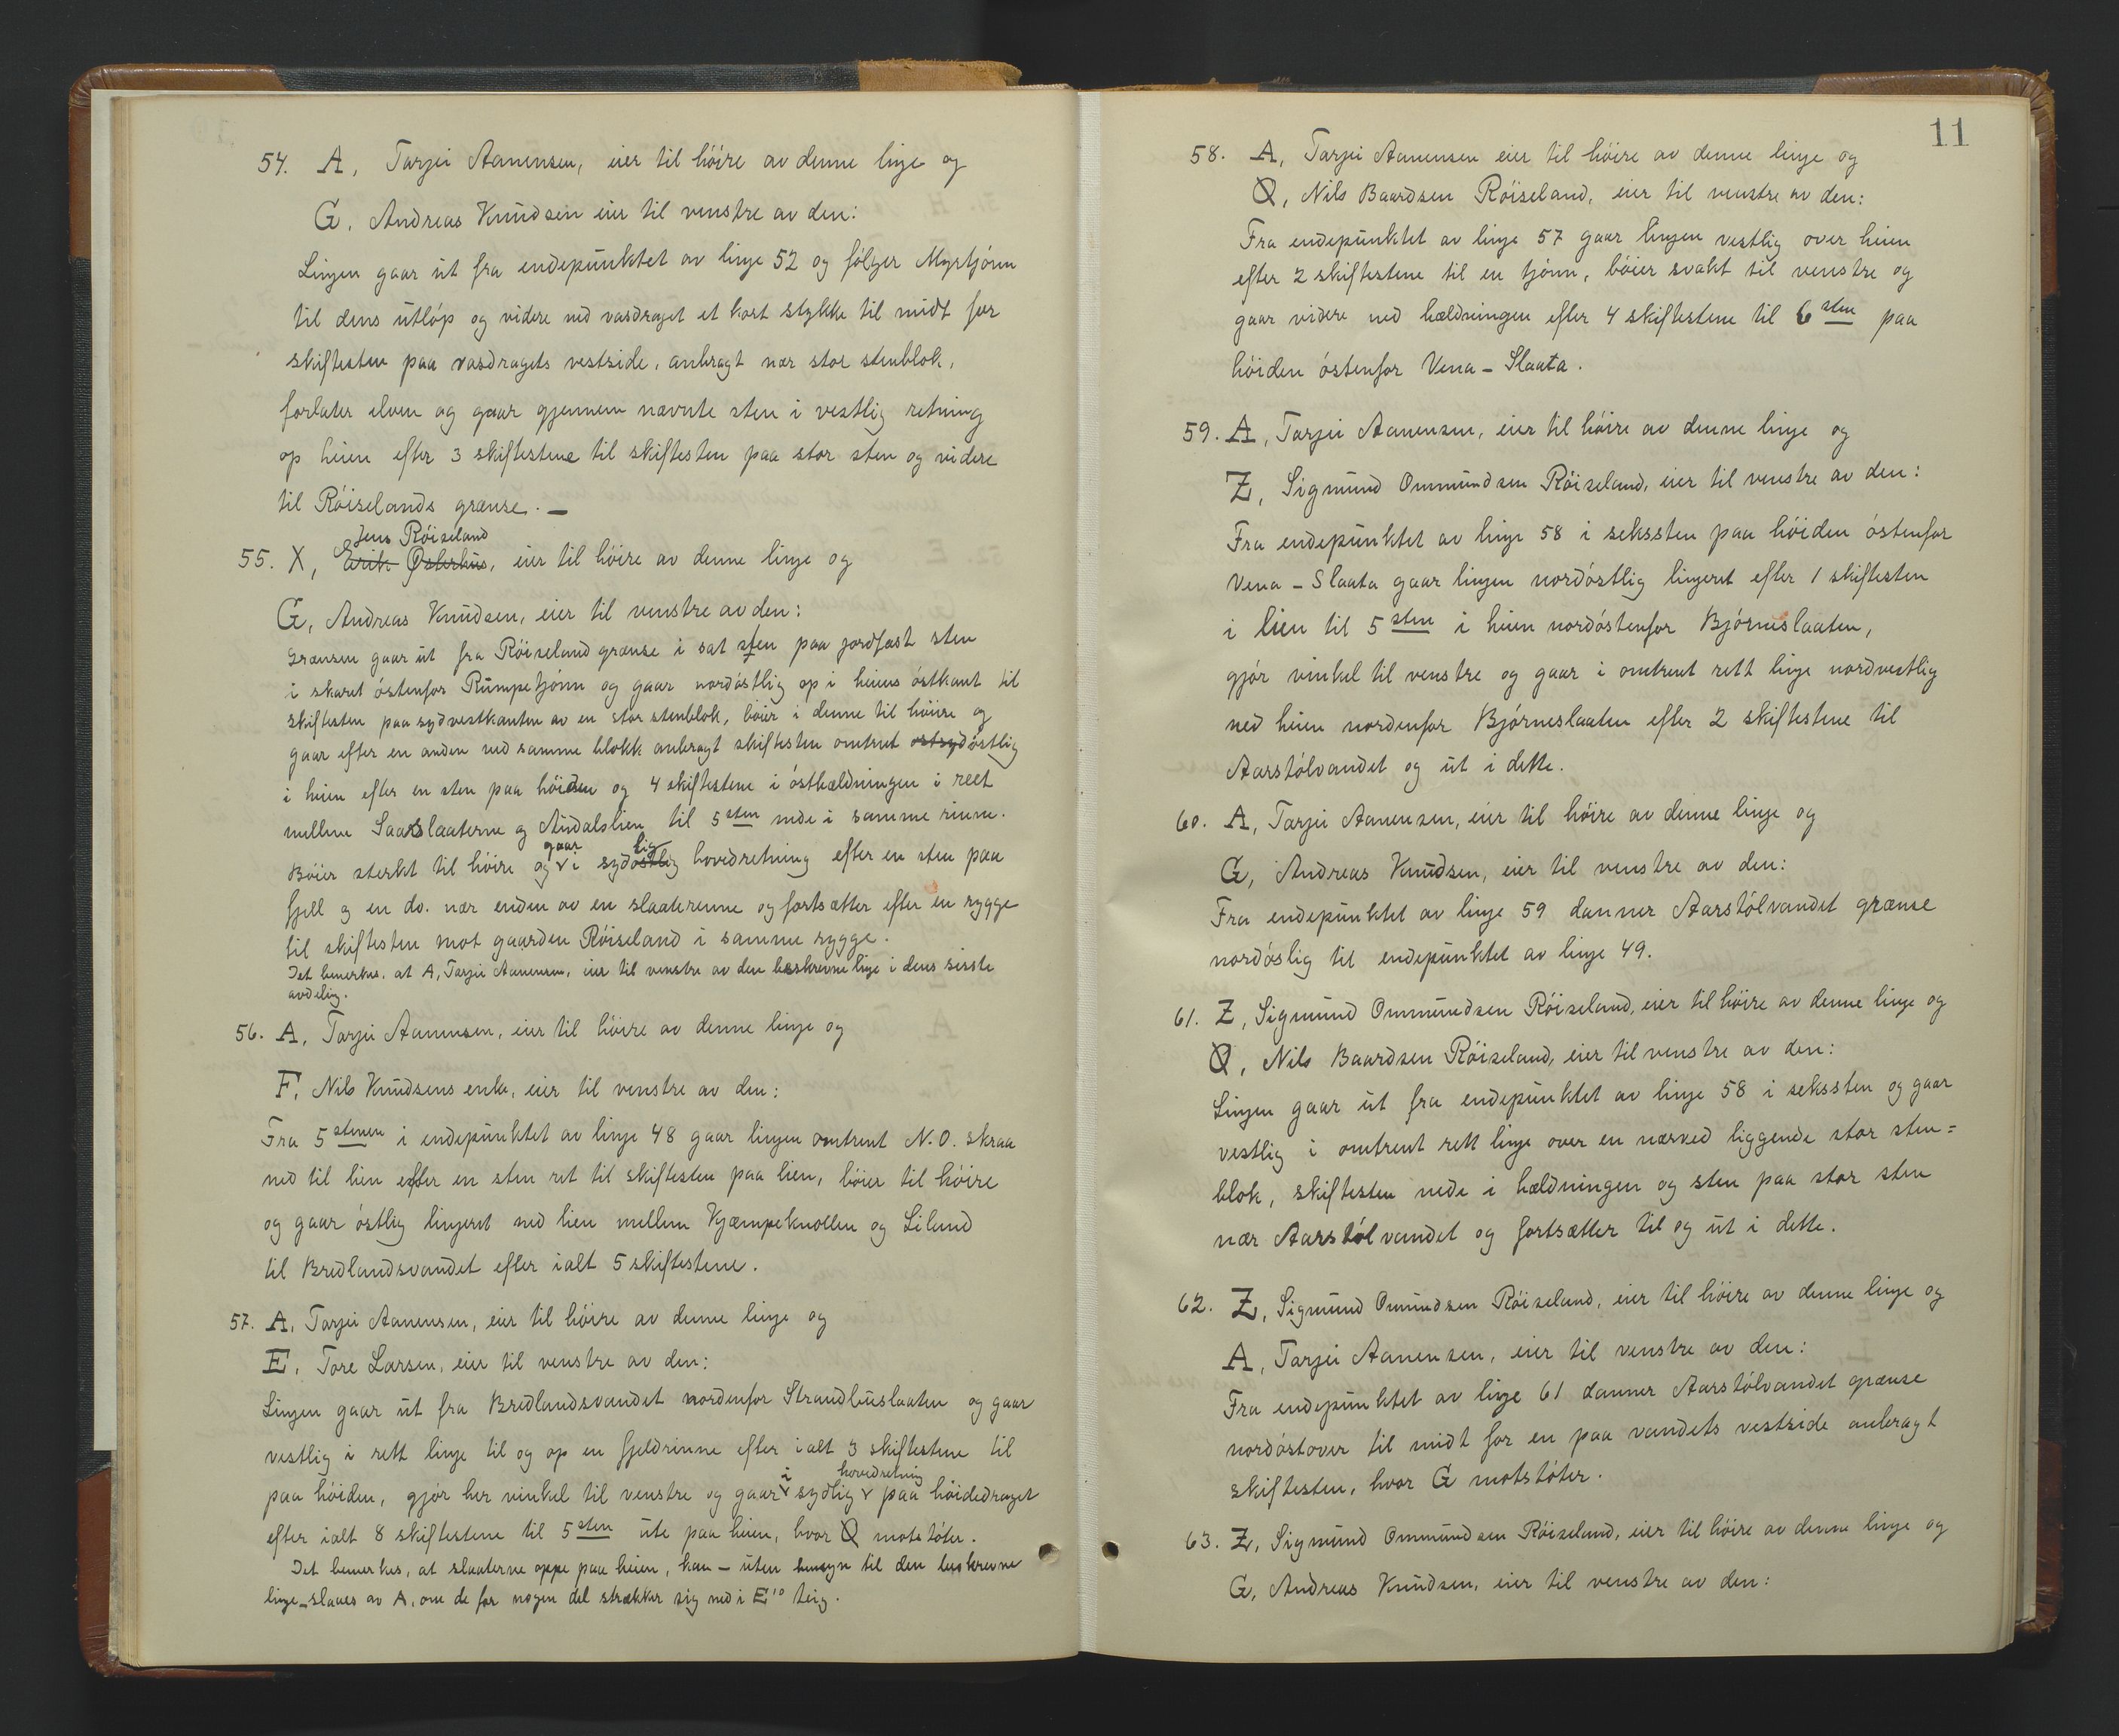 54. A, Tarjei Aanensen, eier til høire av denne linje og
G, Andreas Knudsen eier til venstre av den:
Linjen gaar ut fra endepunktet av linje 52 og følger Myrtjønn
til dens utløp og videre ned vasdraget et kort stykke til midt for
skiftesten paa vasdragets vestside, anbragt nær stor stenblok,
forlater elven og gaar gjennem nævnte sten i vestlig retning
op heien efter 3 skiftestene til skiftesten paa stor sten og videre
til Røiselands grænse. —
Jens Røiseland
55. X, Erik Østerhus, eier til høire av denne linje og
G, Andreas Knudsen, eier til venstre av den:
Grænsen gaar ut fra Røiseland grænse i sat sten paa jordfast sten
i skaret østenfor Rumpetjønn og gaar nordøstlig op i heiens østkant til
skiftesten paa sydvestkanten av en stor stenblok, bøier i denne til høire og
gaar efter en anden ved samme blokk anbragt skiftesten omtrent ostsydøstlig
i heien efter en sten paa høiden og 4 skiftestene i østhældningen i reet
mellem Saarslaaterne og Audalslien til 5 sten nede i samme rinne.
gaar lig
Bøier sterkt til høire og v i sydøstlig hovedretning efter en sten paa
fjell og en do. nær enden av en slaaterenne og fortsætter efter en rygge
til skiftesten mot gaarden Røiseland i samme rygge.
Det bemerkes, at A, Tarjei Aanensen, eier til venstre av den beskrevne linje i dens sisste
avdeling.
56. A, Tarjei Aanensen, eier til høire av denne linje og
F, Nils Knudsens enke, eier til venstre av den:
Fra 5 stenen i endepunktet av linje 48 gaar linjen omtrent N.O. skraa
ned til lien efter en sten ret til skiftesten paa lien, bøier til høire
og gaar østlig linjeret ned lien mellem Kjæmpeknollen og Lilund
til Bredlandsvandet efter ialt 5 skiftestene.
57. A, Tarjei Aanensen, eier til høire av denne linje og
E, Tore Larsen, eier til venstre av den:
Linjen gaar ut fra Bredlandsvandet nordenfor Strandhuslaaten og gaar
vestlig i rett linje til og op en fjeldrinne efter ialt 3 skiftestene til
i hovedretning
paa høiden, gjør her vinkel til venstre og gaar v sydlig v paa høidedraget
efter ialt 8 skiftestene til 5 sten ute paa heien, hvor Q motstøter.
Det bemerkes, at slaaterne oppe paa heien, kan – uten hensyn til den beskrevne
linje – slaaes av A, om de for nogen del strækker sig ned i E's teig.
11
58. A, Tarjei Aanensen eier til høire av denne linje og
Q, Nils Baardsen Røiseland, eier til venstre av den:
Fra endepunktet av linje 57 gaar linjen vestlig over heien
efter 2 skiftestene til en tjønn, bøier svakt til venstre og
gaar videre ned hældningen efter 4 skiftestene til 6 sten paa
høiden østenfor Vena – Slaata.
59. A, Tarjei Aanensen, eier til høire av denne linje og
Z, Sigmund Ommundsen Røiseland, eier til venstre av den:
Fra endepunktet av linje 58 i seksten paa høiden østenfor
Vena – Slaata gaar linjen nordøstlig linjeret efter 1 skiftesten
i lien til 5 sten i heien nordøstenfor Bjørneslaaten,
gjør vinkel til venstre og gaar i omtrent rett linje nordvestlig
ned heien nordenfor Bjørneslaaten efter 2 skiftestene til
Aarstølvandet og ut i dette.
60. A, Tarjei Aanensen, eier til høire av denne linje og
G, Andreas Knudsen, eier til venstre av den:
Fra endepunktet av linje 59 danner Aarstølvandet grænse
nordøslig til endepunktet av linje 49.
61. Z, Sigmund Ommundsen Røiseland, eier til høire av denne linje og
Q, Nils Baardsen Røiseland, eier til venstre av den:
Linjen gaar ut fra endepunktet av linje 58 i seksten og gaar
vestlig i omtrent rett linje over en nærved liggende stor sten=
blok, skiftesten nede i hældningen og sten paa stor sten
nær Aarstølvandet og fortsætter til og ut i dette.
62. Z, Sigmund Omundsen Røiseland, eier til høire av denne linje og
A, Tarjei Aanensen, eier til venstre av den:
Fra endepunktet av linje 61 danner Aarstølvandet grænse
nordøstover til midt for en paa vandets vestside anbragt
skiftesten, hvor G motstøter.
63. Z, Sigmund Ommundsen Røiseland, eier til høire av denne linje og
G, Andreas Knudsen, eier til venstre av den: